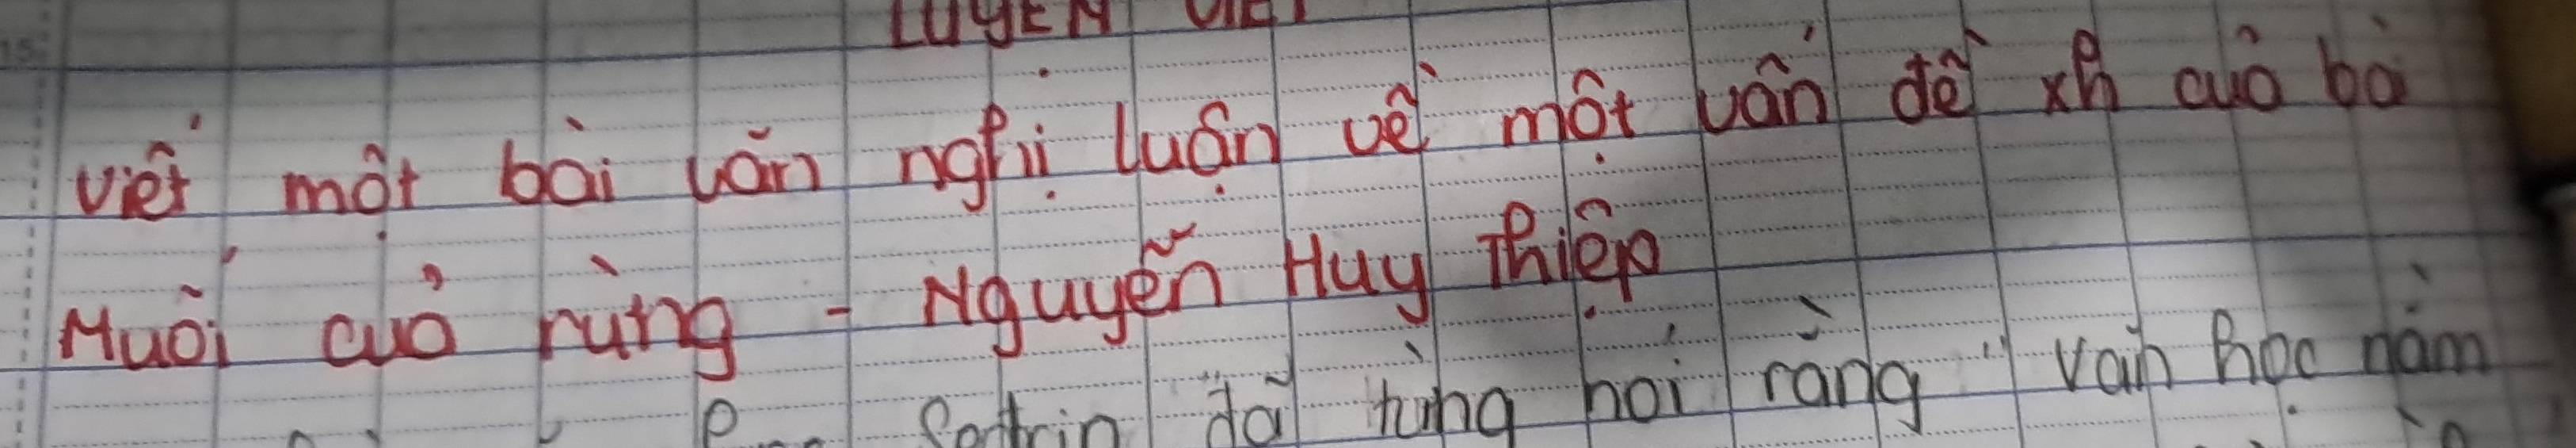 LUYỆN VIẾT
Viết một bài văn nghị luận về một vấn đề xh của bài
Muối của rừng - Nguyễn Huy Thiệp
đã từng nói rằng "Văn học nằm